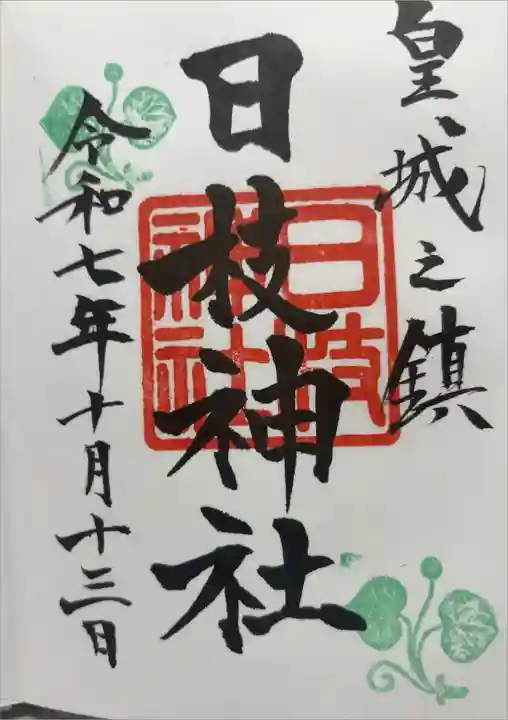 皇城之鎮
日枝神社
日枝
神社
令和七年十月十三日